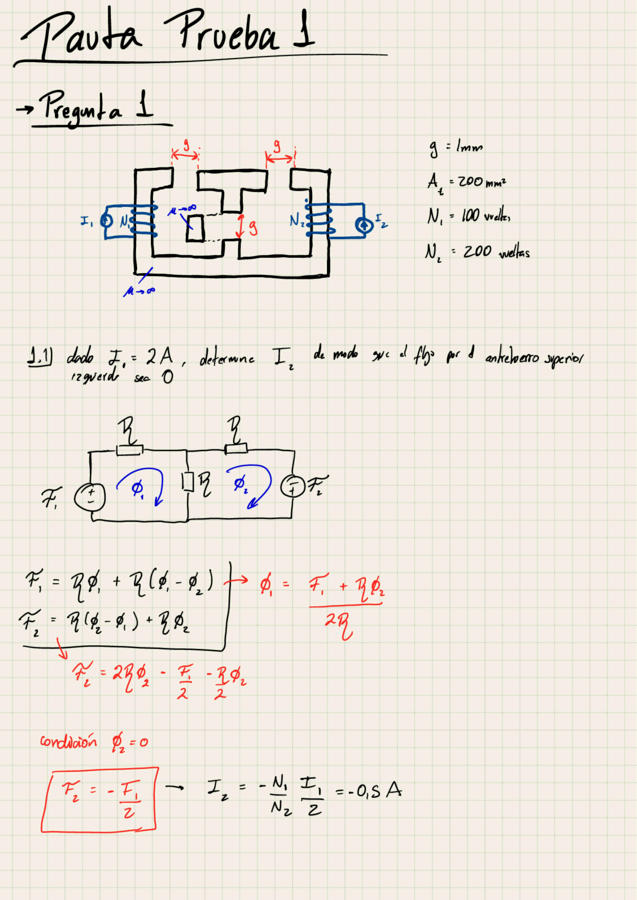 Pauta Prueba 1
→ Pregunta 1
g
g
g = 1mm
A_t = 200 mm²
I₁
N₁
μ→∞
g
N₂
I₂
N₁ = 100 vueltas
N₂ = 200 vueltas
μ→∞
1.1) dado I₁ = 2A, determine I₂ de modo que el flujo por el entrehierro superior
izquierdo sea 0
R
R
F₁
ϕ₁
R
ϕ₂
F₂
F₁ = Rϕ₁ + R(ϕ₁ - ϕ₂) → ϕ₁ = (F₁ + Rϕ₂) / 2R
F₂ = R(ϕ₂ - ϕ₁) + Rϕ₂
F₂ = 2Rϕ₂ - F₁/2 - R/2 ϕ₂
condición ϕ₂ = 0
F₂ = - F₁/2 → I₂ = - N₁/N₂ I₁/2 = -0,5 A